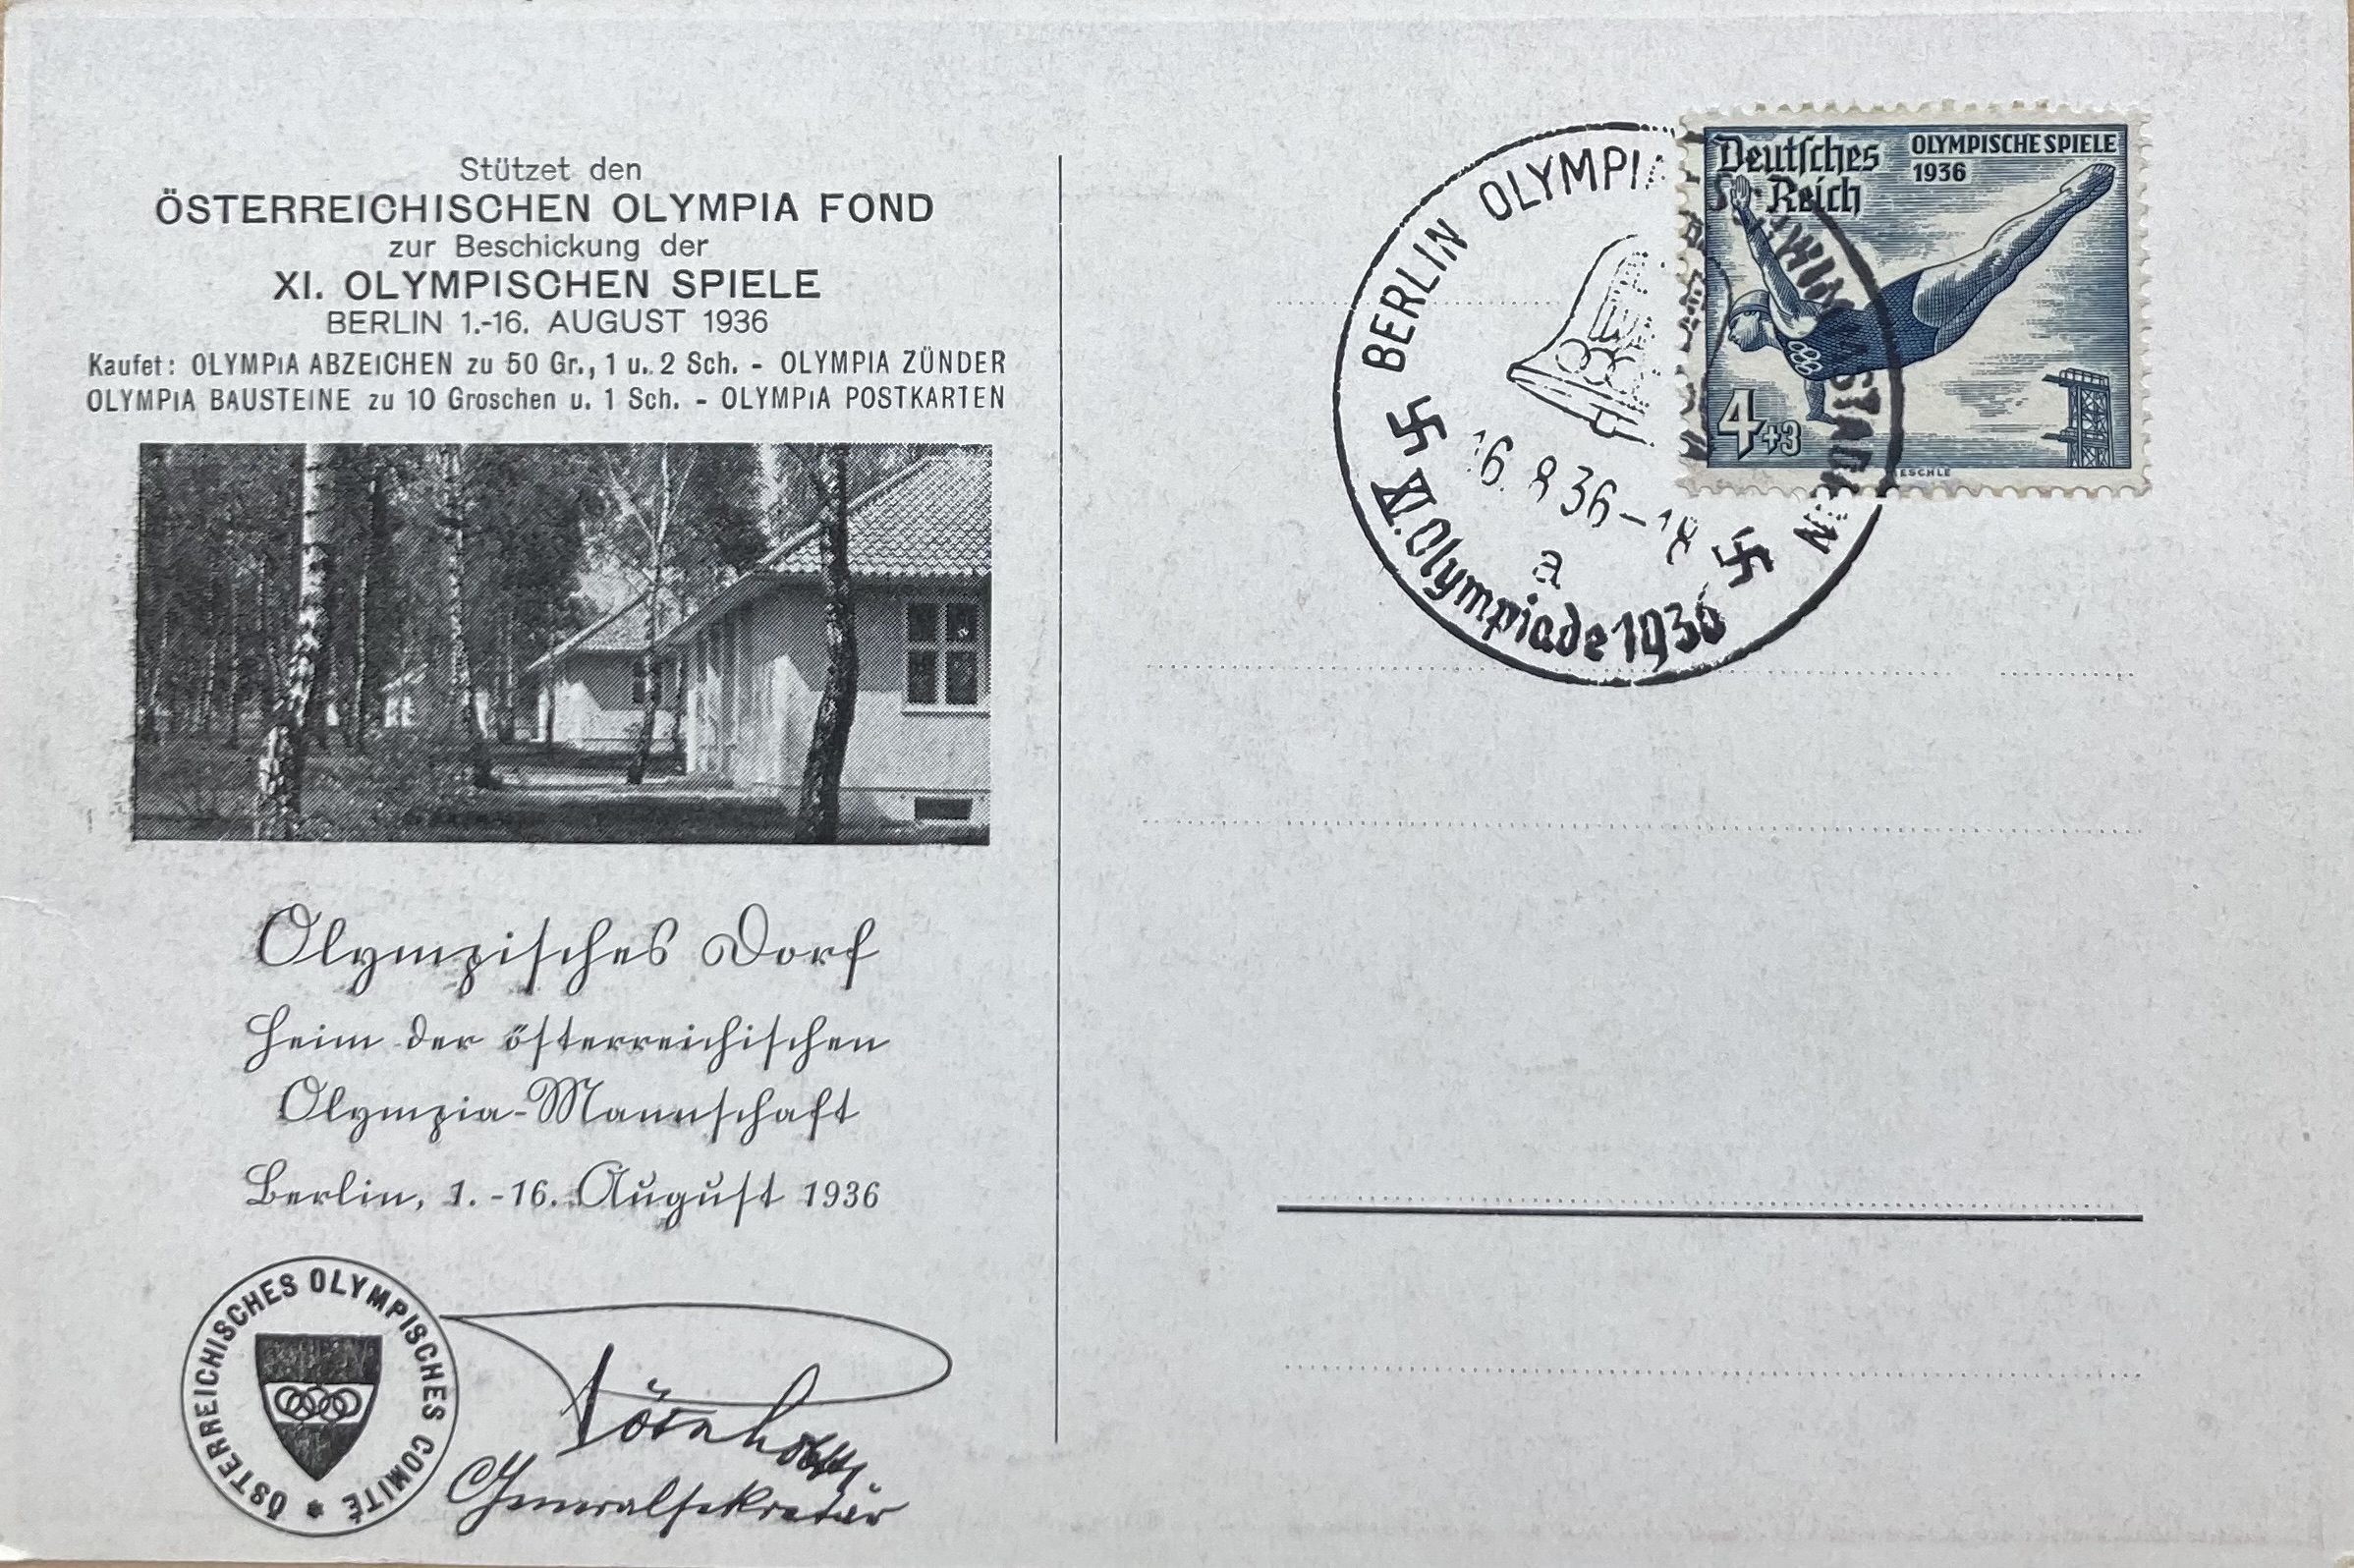 Stützet den
ÖSTERREICHISCHEN OLYMPIA FOND
zur Beschickung der
XI. OLYMPISCHEN SPIELE
BERLIN 1.-16. AUGUST 1936
Kaufet: OLYMPiA ABZEICHEN zu 50 Gr., 1 u. 2 Sch. - OLYMPIA ZÜNDER
OLYMPiA BAUSTEINE zu 10 Groschen u. 1 Sch. - OLYMPiA POSTKARTEN
Olympisches Dorf
Heim der österreichischen
Olympia-Mannschaft
Berlin, 1.-16. August 1936
ÖSTERREICHISCHES OLYMPISCHES COMITÉ *
Generalsekretär
BERLIN OLYMPIA
16.8.36-18
a
XI. Olympiade 1936
Deutsches
Reich
OLYMPISCHE SPIELE
1936
4+3